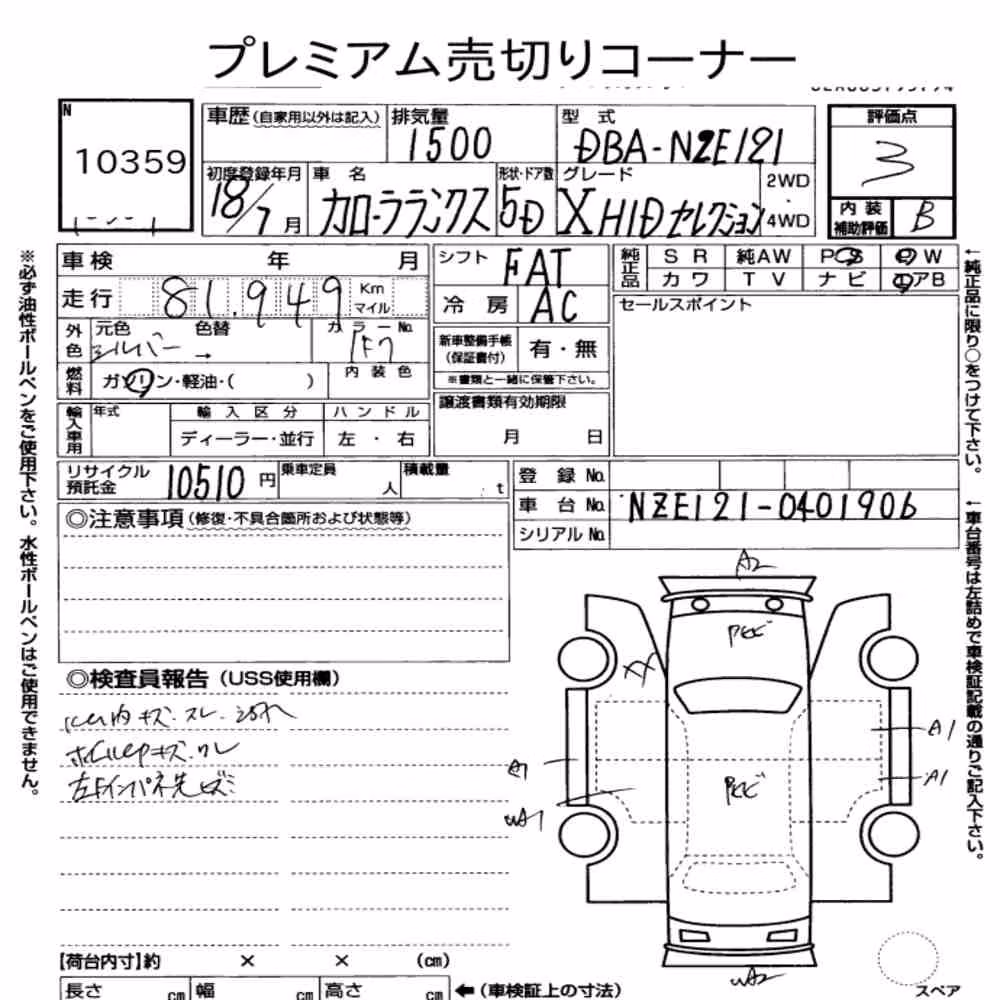 プレミアム売切りコーナー
N
10359
車歴(自家用以外は記入)
排気量
1500
型式
DBA-NZE121
評価点
3
初度登録年月
18/7月
車名
カローラランクス
形状・ドア数
5D
グレード
X HIDセレクション
2WD
4WD
内装
補助評価
B
車検 年 月
走行 81,949 Km
マイル
外色
元色
シルバー →
色替
カラーNo.
1F7
燃料
ガソリン・軽油・( )
内装色
輸入車用
年式
輸入区分
ディーラー・並行
ハンドル
左・右
シフト
FAT
冷房
AC
新車整備手帳
(保証書付)
有・無
※書類と一緒に保管下さい。
譲渡書類有効期限
月 日
純正品
SR 純AW PS PW
カワ TV ナビ エアB
セールスポイント
リサイクル
預託金
10510円
乗車定員
人
積載量
t
登録No.
車台No. NZE121-0401906
シリアルNo.
◎注意事項(修復・不具合箇所および状態等)
◎検査員報告(USS使用欄)
A2
A1
A1
A1
【荷台内寸】約 × × (cm)
長さ cm 幅 cm 高さ cm ←(車検証上の寸法)
スペア
※必ず油性ボールペンをご使用下さい。水性ボールペンはご使用できません。
←純正品に限り○をつけて下さい。
←車台番号は左詰めで車検証記載の通りご記入下さい。